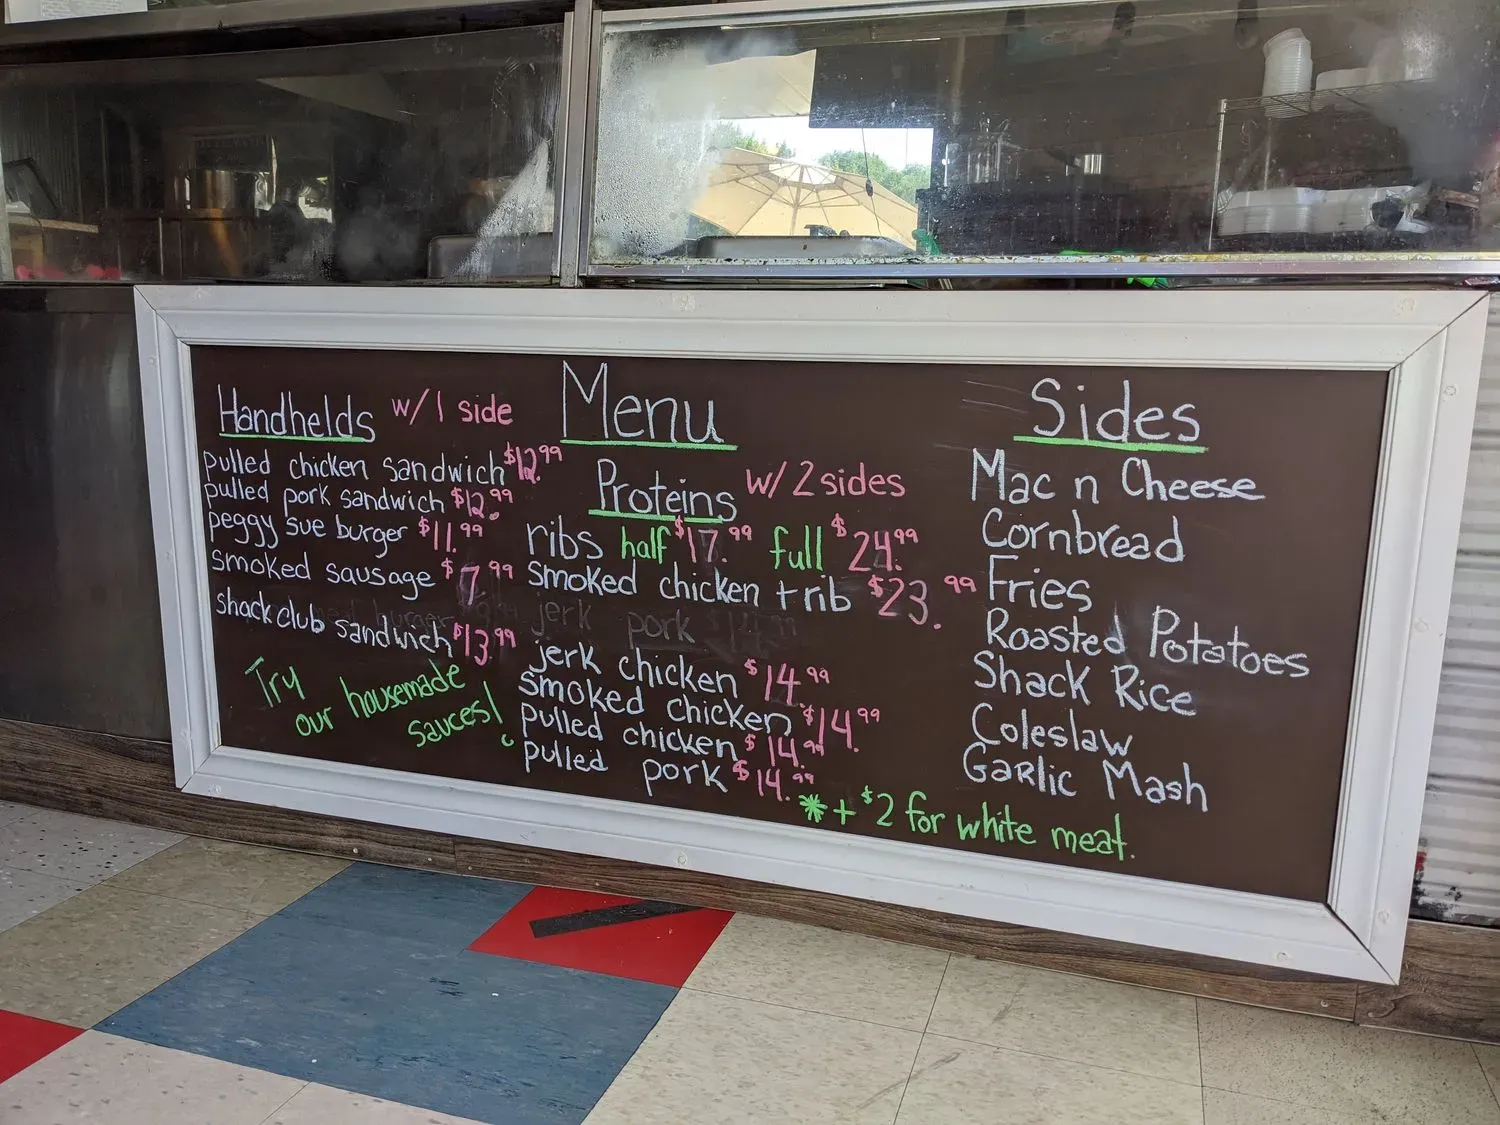 Menu
Handhelds w/ 1 side
pulled chicken sandwich $12.99
pulled pork sandwich $12.99
peggy sue burger $11.99
smoked sausage $7.99
shack club sandwich $13.99
Try
our housemade
sauces!
Proteins w/ 2 sides
ribs half $17.99 full $24.99
smoked chicken + rib $23.99
jerk pork
jerk chicken $14.99
smoked chicken $14.99
pulled chicken $14.99
pulled pork $14.99
*+ $2 for white meat.
Sides
Mac n Cheese
Cornbread
Fries
Roasted Potatoes
Shack Rice
Coleslaw
Garlic Mash